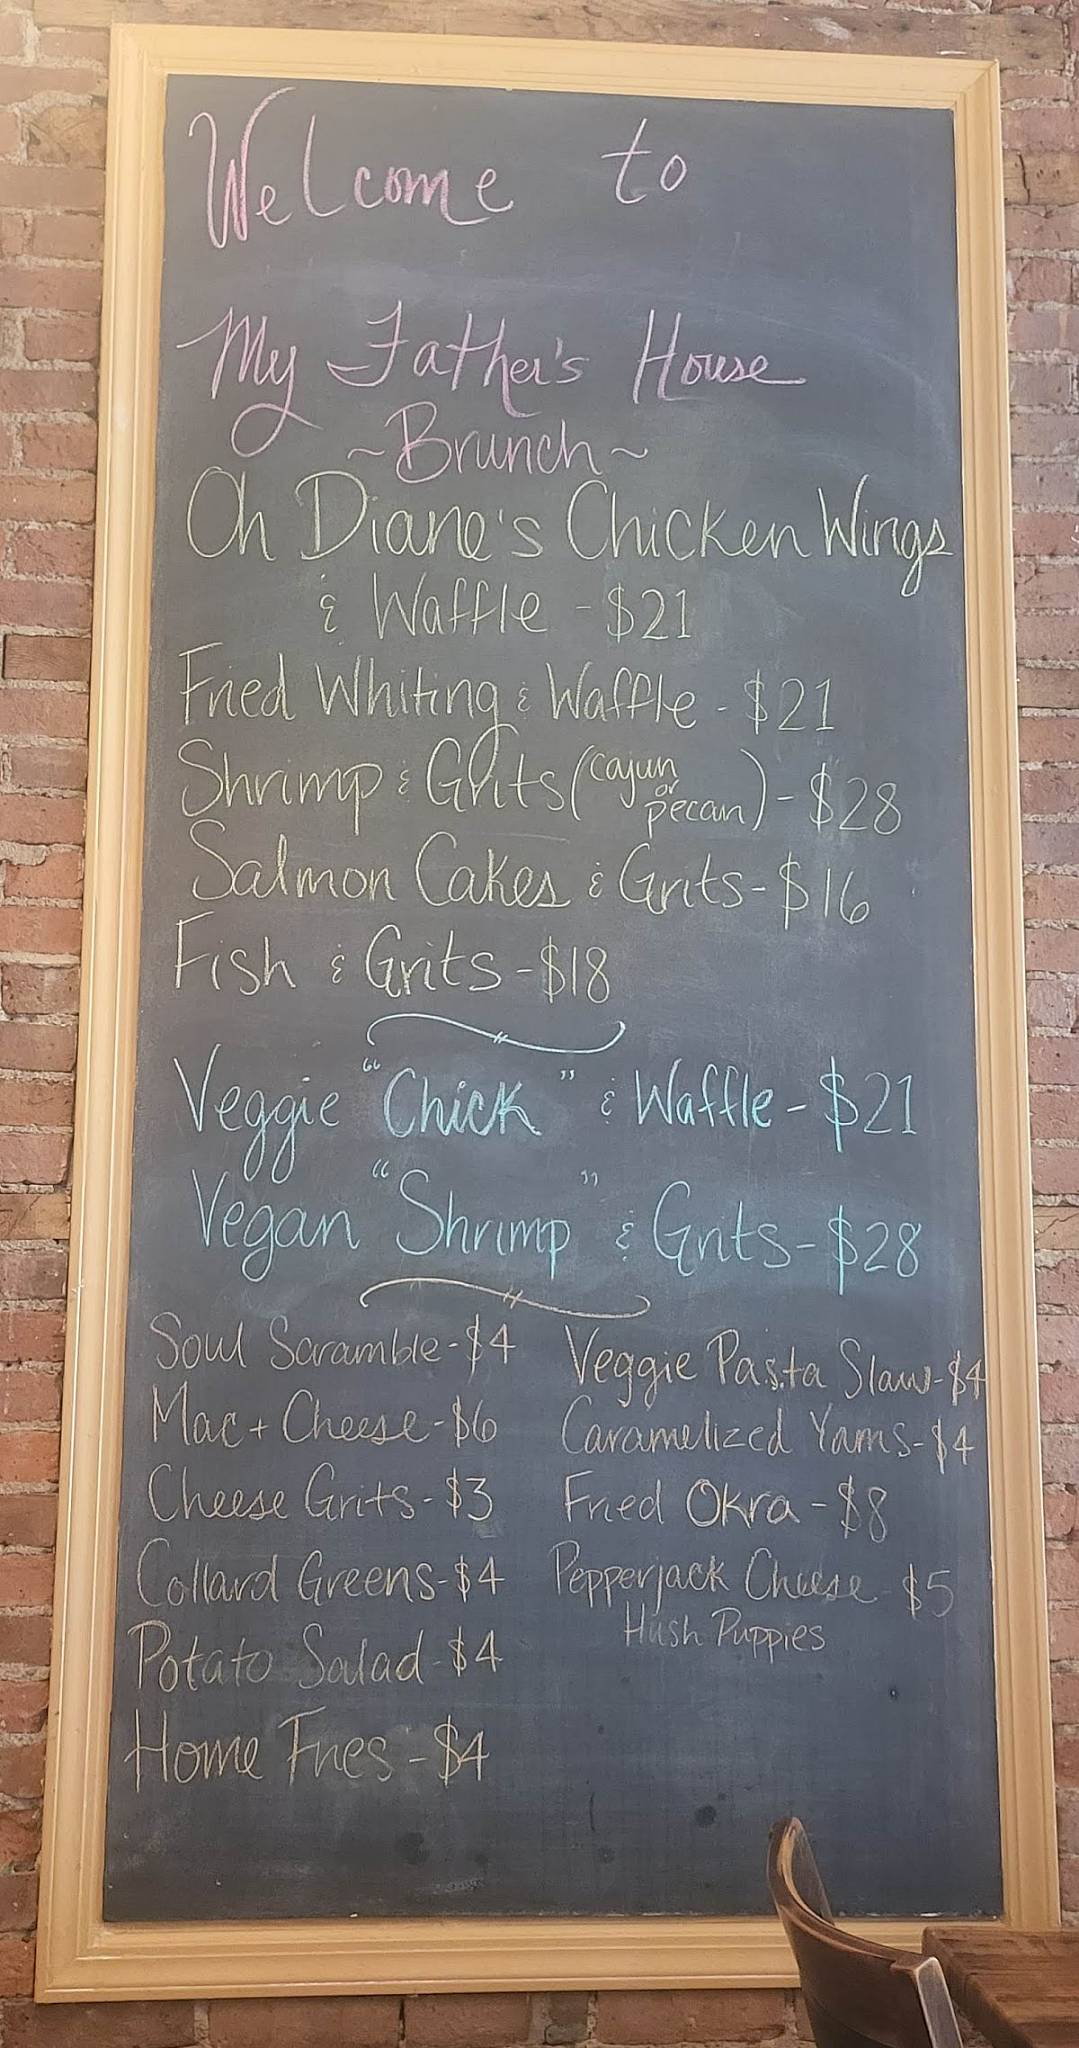 Welcome to
My Father's House
~Brunch~
Oh Diane's Chicken Wings
& Waffle - $21
Fried Whiting & Waffle - $21
Shrimp & Grits (cajun or pecan) - $28
Salmon Cakes & Grits - $16
Fish & Grits - $18
Veggie "Chick" & Waffle - $21
Vegan "Shrimp" & Grits - $28
Soul Scramble - $4
Mac + Cheese - $6
Cheese Grits - $3
Collard Greens - $4
Potato Salad - $4
Home Fries - $4
Veggie Pasta Slaw - $4
Caramelized Yams - $4
Fried Okra - $8
Pepperjack Cheese - $5
Hush Puppies